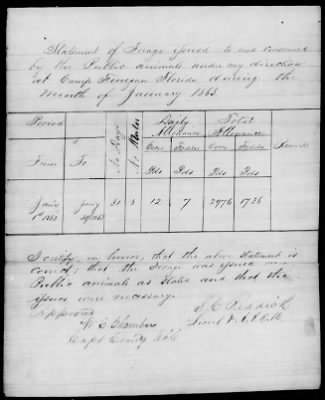 Statement of Forage issued to and consumed
by the Public animals under my direction
at Camp Finegan Florida during the
Month of January 1863.
Period
No Days
No Mules
Daily Allowance
Total Allowance
Remarks
From
To
Corn
Fodder
Corn
Fodder
Pds
Pds
Pds
Pds
Jany 1st 1863
Jany 1863
31
8
12
7
2976
1736
I certify, on honor, that the above Statement is
correct; that the Forage was issued
Public animals as stated and that the
issues were necessary.
Approved
W. E. Chambers
Capt Comdg